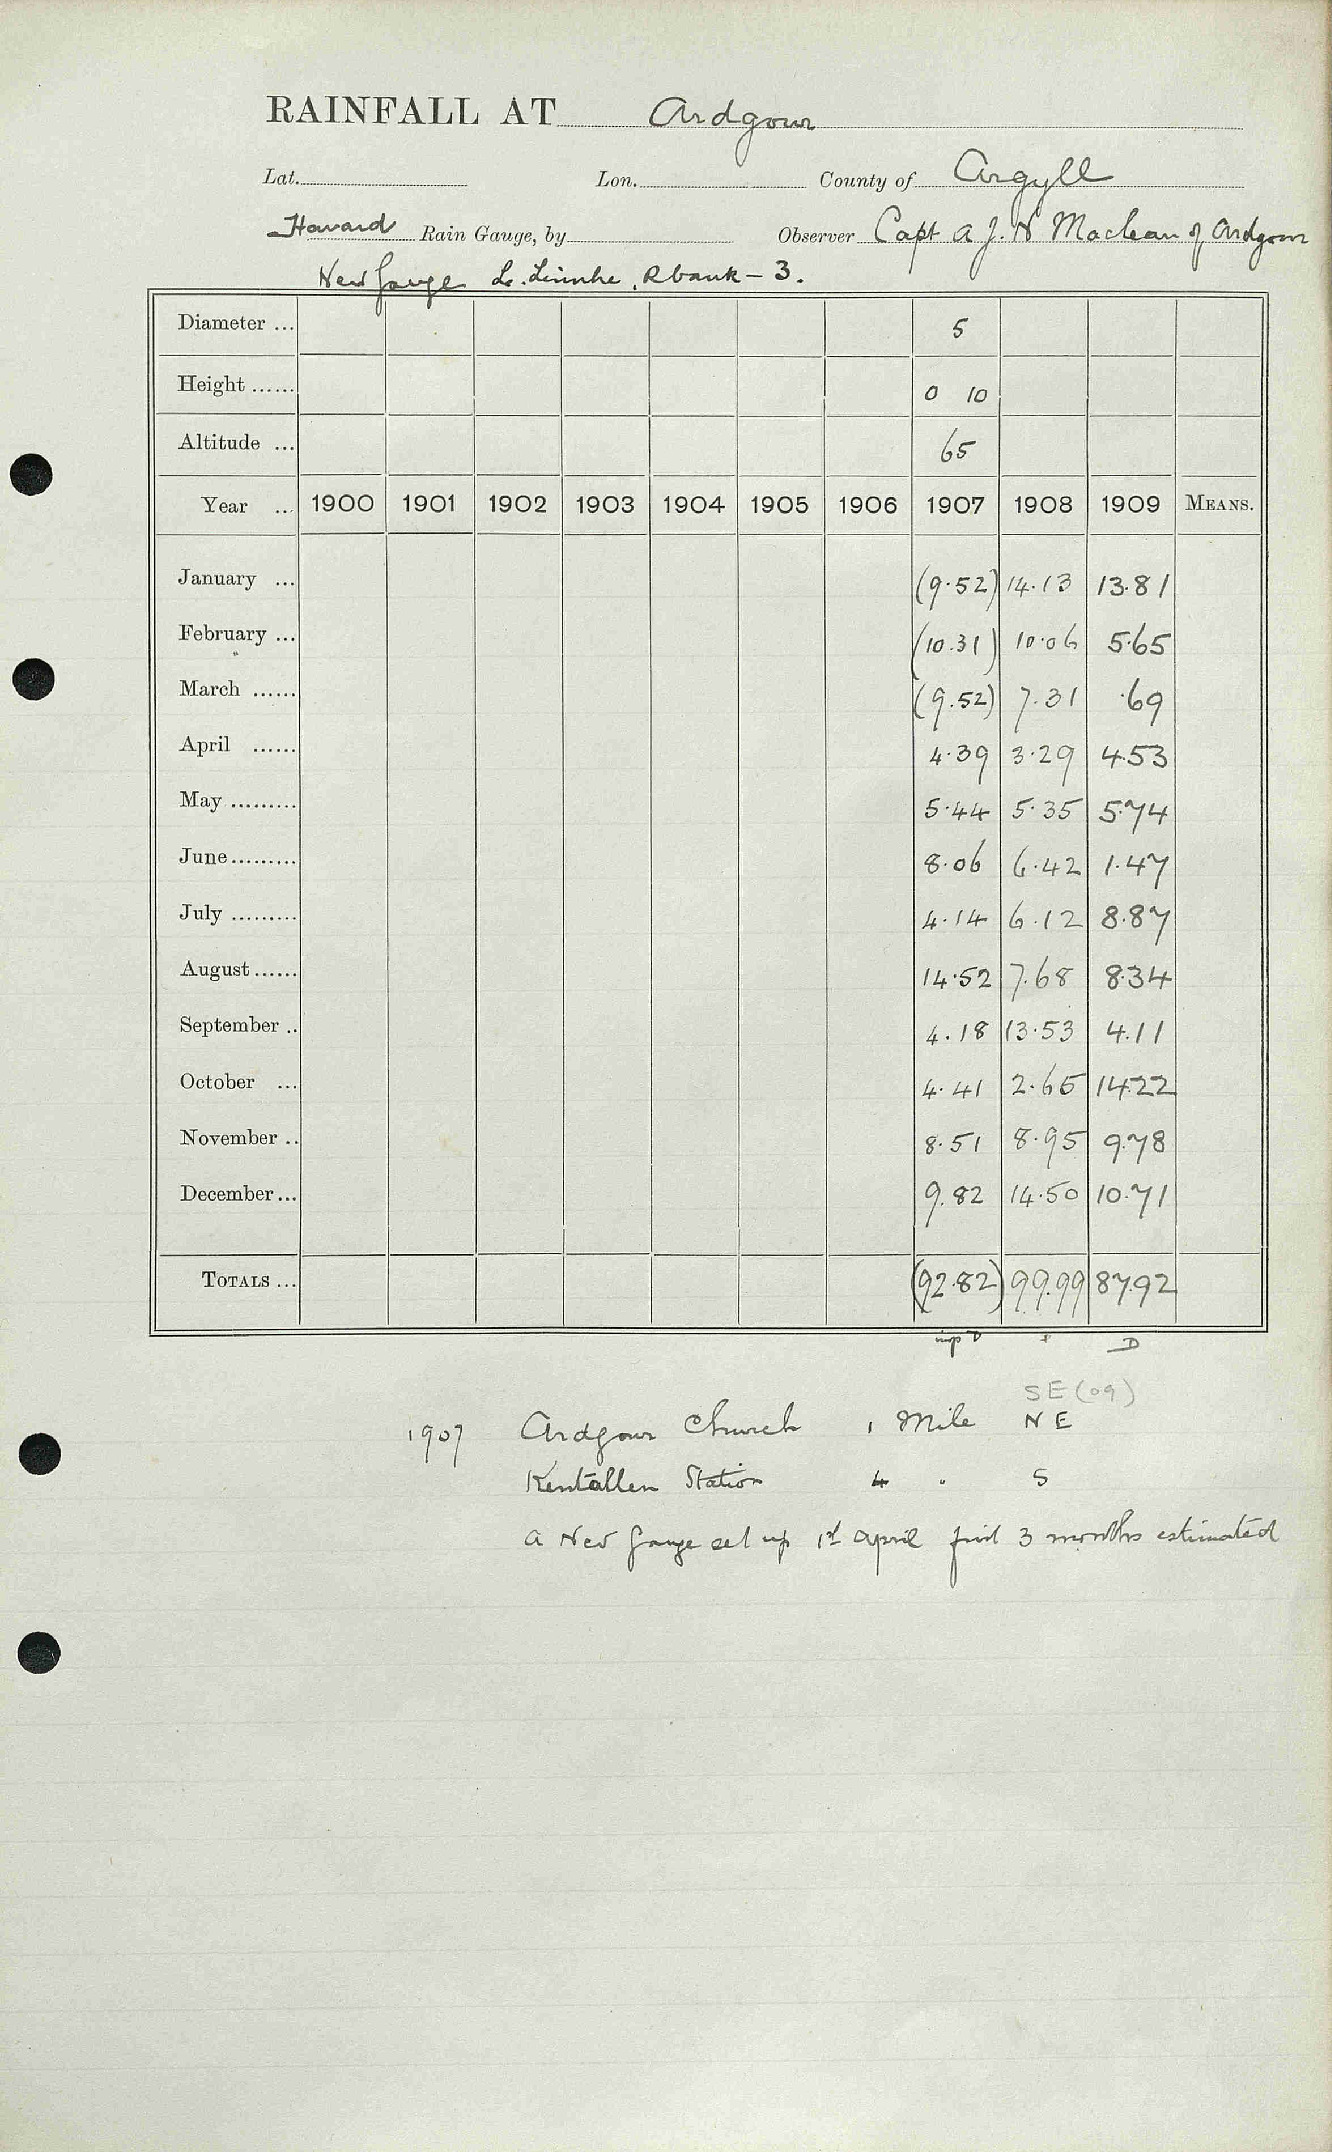 RAINFALL AT Ardgour
Lat. Lon. County of Argyll
Howard Rain Gauge, by Observer Capt A J. N Maclean of Ardgour
New Gauge L. Linnhe, R bank - 3.
Diameter ... 5
Height ...... 0 10
Altitude ... 65
Year ... 1900 1901 1902 1903 1904 1905 1906 1907 1908 1909 MEANS.
January ... (9.52) 14.13 13.81
February ... (10.31) 10.06 5.65
March ...... (9.52) 7.31 .69
April ...... 4.39 3.29 4.53
May ......... 5.44 5.35 5.74
June ......... 8.06 6.42 1.47
July ......... 4.14 6.12 8.87
August ...... 14.52 7.68 8.34
September .. 4.18 13.53 4.11
October ... 4.41 2.65 14.22
November .. 8.51 8.95 9.78
December ... 9.82 14.50 10.71
TOTALS ... (92.82) 99.99 87.92
D
SE (09)
1907 Ardgour Church 1 Mile NE
Kentallen Station 4 " S
A New Gauge set up 1st April first 3 months estimated